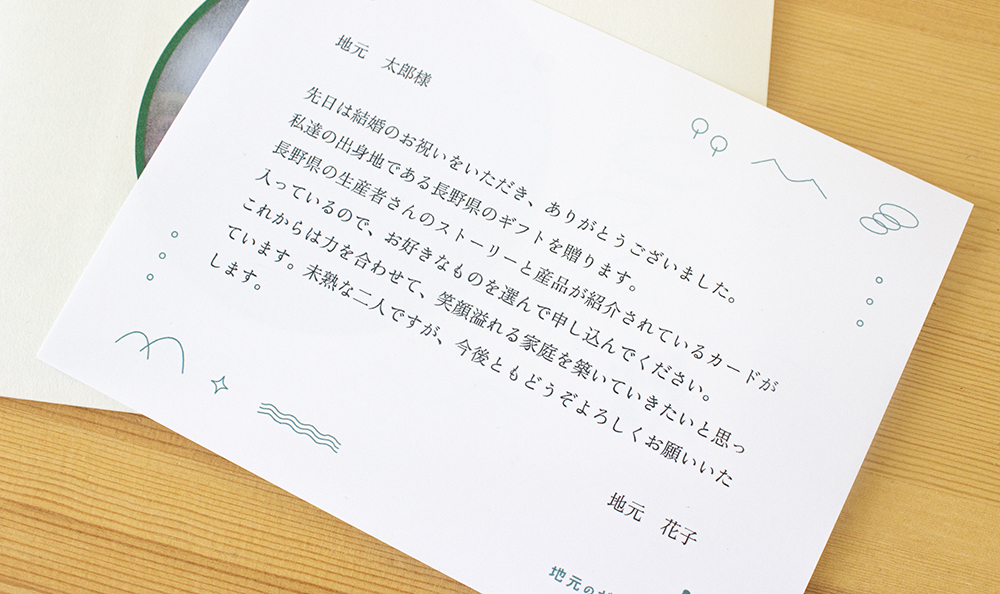 地元　太郎様
先日は結婚のお祝いをいただき、ありがとうございました。
私達の出身地である長野県のギフトを贈ります。
長野県の生産者さんのストーリーと産品が紹介されているカードが
入っているので、お好きなものを選んで申し込んでください。
これからは力を合わせて、笑顔溢れる家庭を築いていきたいと思っ
ています。未熟な二人ですが、今後ともどうぞよろしくお願いいた
します。
地元　花子
地元の